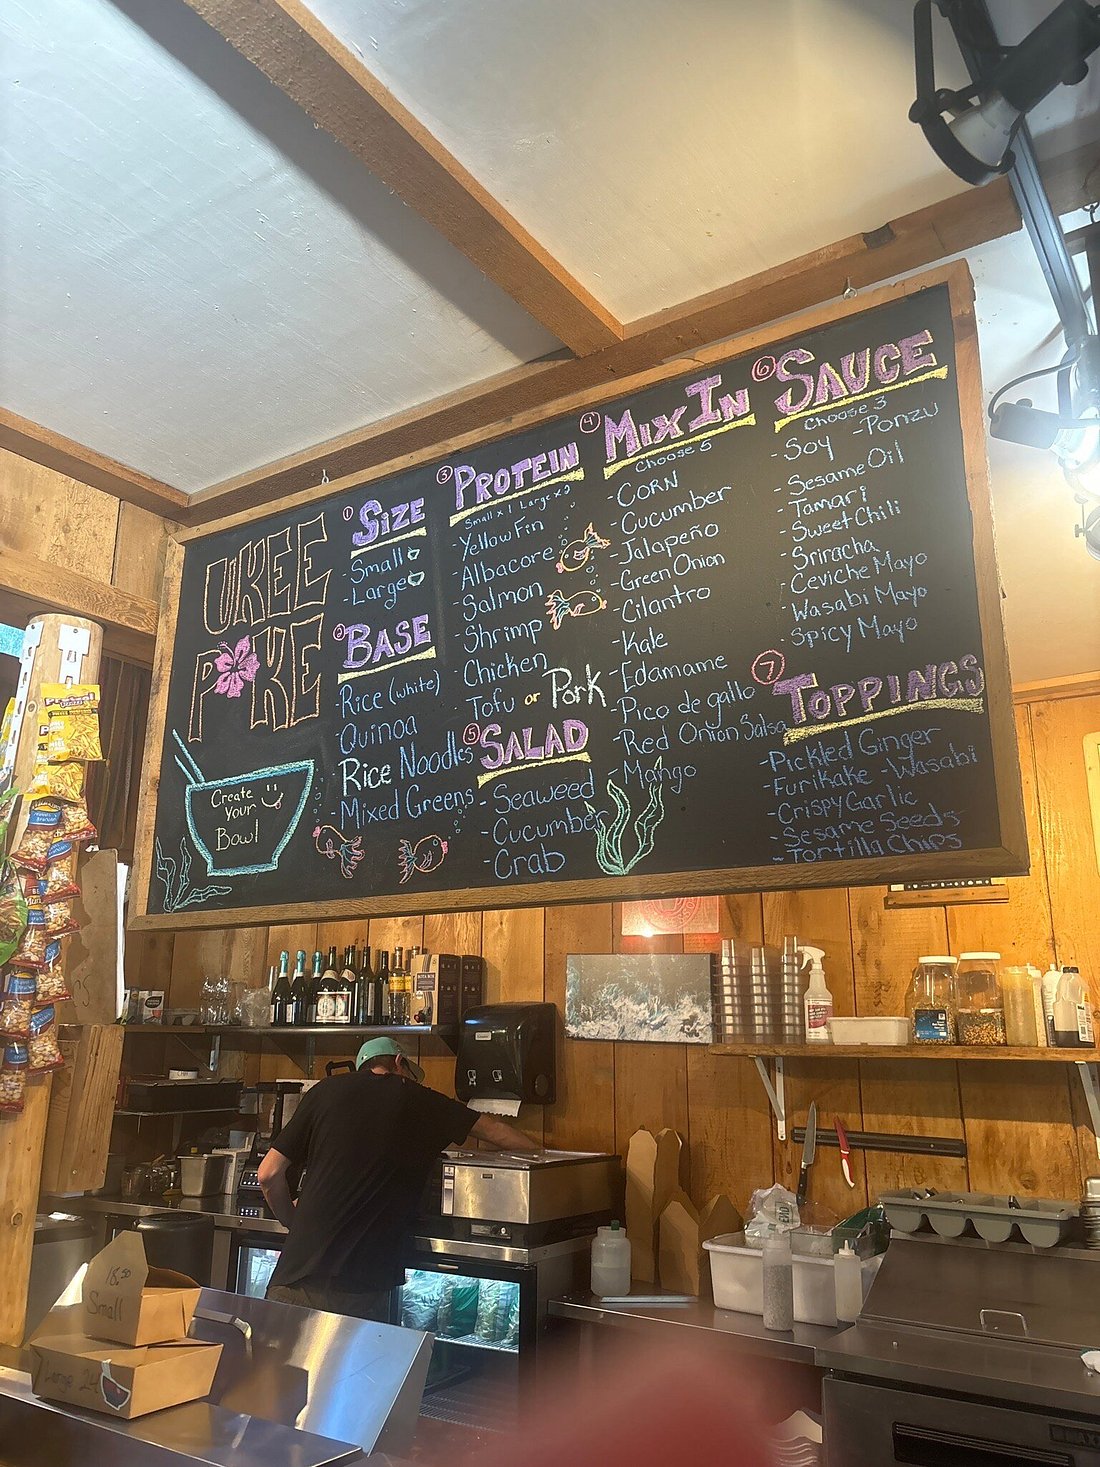 UKEE
POKE
Create
Your
Bowl
1 SIZE
- Small
- Large
2 BASE
- Rice (white)
- Quinoa
- Rice Noodles
- Mixed Greens
3 PROTEIN
Small x 1 Large x 2
- Yellow Fin
- Albacore
- Salmon
- Shrimp
- Chicken
- Tofu or Pork
5 SALAD
- Seaweed
- Cucumber
- Crab
4 MIX IN
Choose 5
- CORN
- Cucumber
- Jalapeño
- Green Onion
- Cilantro
- Kale
- Edamame
- Pico de gallo
- Red Onion Salsa
- Mango
6 SAUCE
Choose 3
- Soy - Ponzu
- Sesame Oil
- Tamari
- Sweet Chili
- Sriracha
- Ceviche Mayo
- Wasabi Mayo
- Spicy Mayo
7 TOPPINGS
- Pickled Ginger
- Furikake - Wasabi
- Crispy Garlic
- Sesame Seeds
- Tortilla Chips
18.50
Small
Large 24